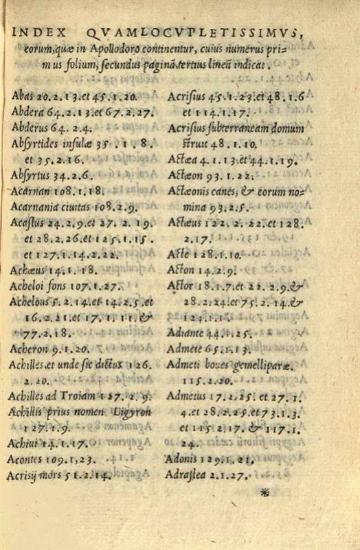 INDEX QVAMLOCVPLETISSIMVS,
eorum, quæ in Apollodoro continentur, cuius numerus pri-
mus folium, secundus paginā, tertius lineā indicat.
Abas 20.2.13.et 45.1.20.
Abdera 64.2.13.et 67.2.27.
Abderus 64.2.4.
Absyrtides insulæ 35.1.8.
et 35.2.16.
Absyrtus 34.2.6.
Acarnan 108.1.18.
Acarnania ciuitas 108.2.9.
Acastus 24.2.9.et 27.2.19.
et 28.2.26.et 125.1.15.
et 127.1.14.2.22.
Achæus 14.1.18.
Acheloi fons 107.1.27.
Achelous 5.2.14.et 14.2.5.et
16.2.21.et 17.1.11.&
77.2.18.
Acheron 9.1.20.
Achilles, et unde sic dictus 126.
2.20.
Achilles ad Troiam 127.2.9.
Achillis prius nomen Ligyron
127.1.9.
Achiui 14.1.17.
Acontes 109.1.23.
Acrisij mors 51.2.14.
Acrisius 45.1.23.et 48.1.6
et 114.1.17.
Acrisius subterraneam domum
struit 48.1.10.
Actæa 4.1.13.et 44.1.19.
Actæon 93.1.22.
Actæonis canes, & eorum no-
mina 93.2.5.
Actæus 122.2.22.et 128.
2.17.
Acte 128.1.10.
Acton 14.2.9.
Actor 18.1.7.et 22.2.9.&
28.2.24.et 75.2.14.&
124.1.1.
Adiante 44.1.25.
Admete 65.1.13.
Admeti boues gemelliparæ.
115.2.20.
Admetus 17.2.25.et 27.1.
4.et 28.2.25.et 73.1.3.
et 115.2.17.& 117.1.
24.
Adonis 129.1.21.
Adrastea 2.1.27.
*